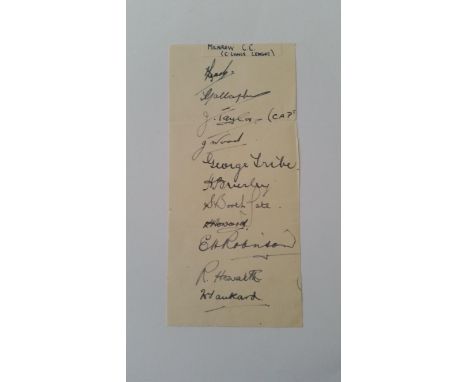 MILNROW C.C.
(C. LANCS LEAGUE)
Gallagher
J. Taylor - (CAPT
J Wood
George Tribe
H Brierley
S Booth Pate
Howard
E A Robinson
R. Howarth
W Tankard